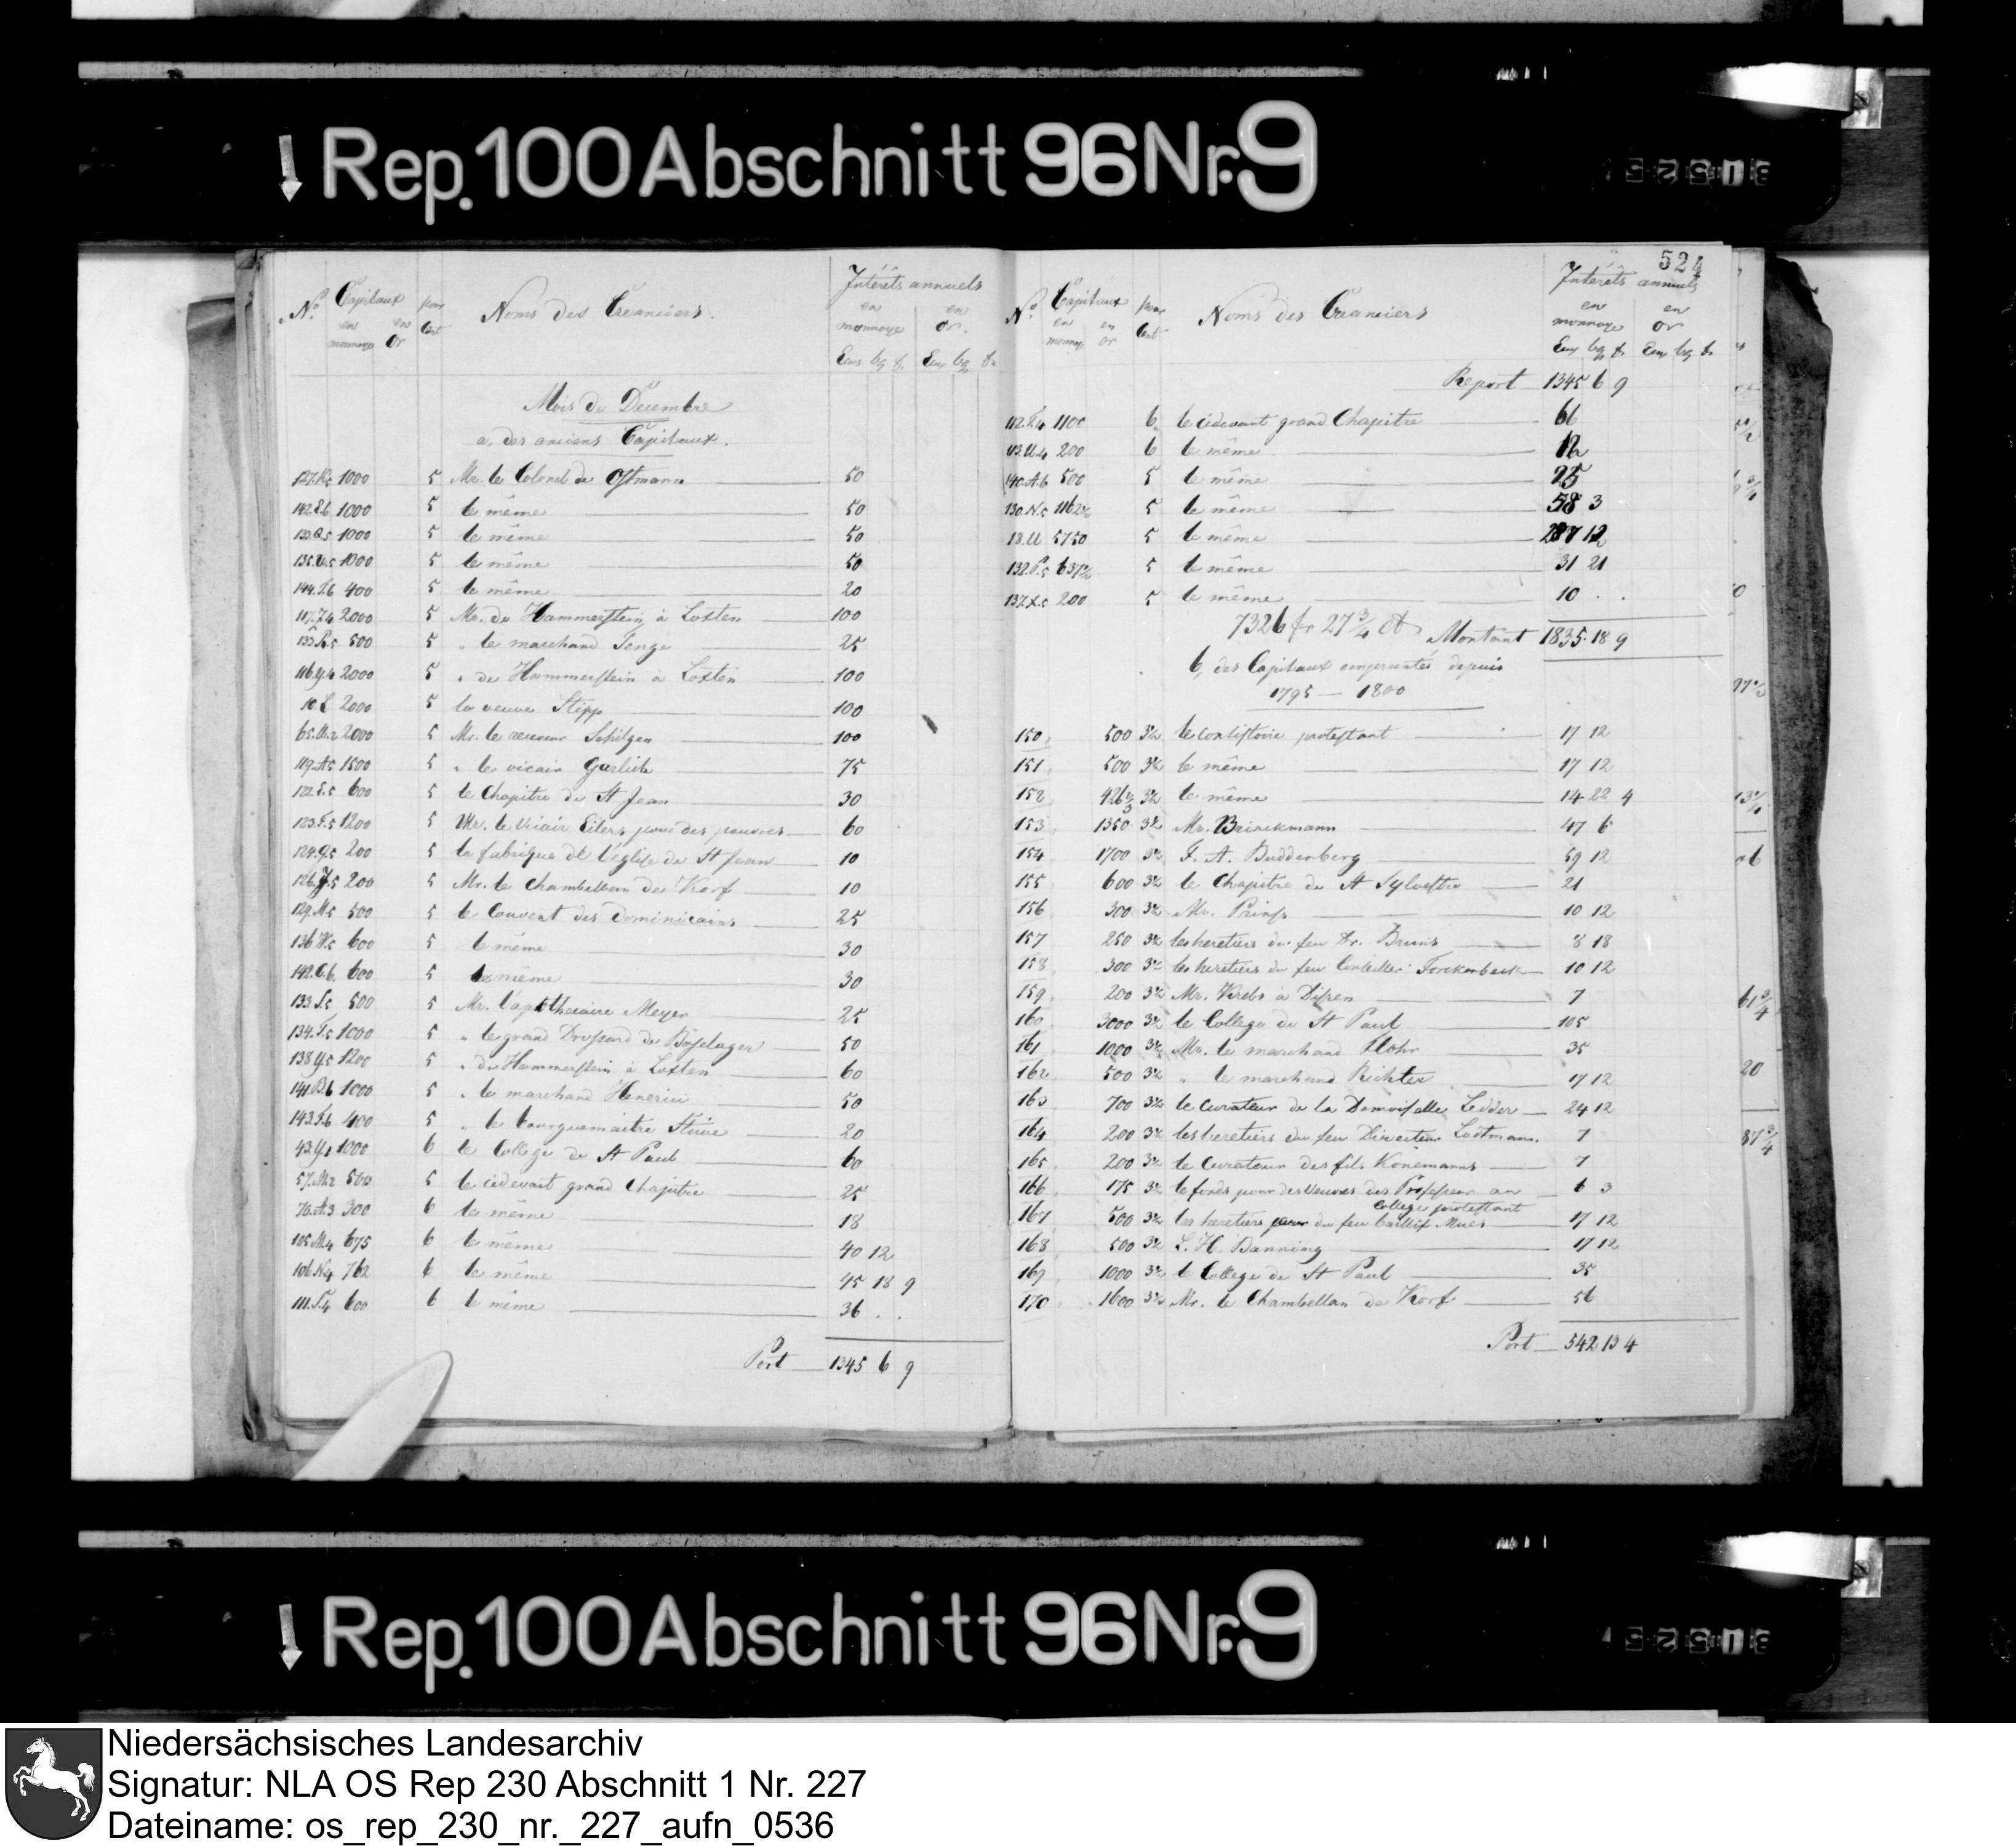 Rep. 100 Abschnitt 96 Nr. 9
No. Capitaux en monnoye en or pour Cent Noms des Creanciers. Intérêts annuels en monnoye en or.
Ecus bg & Ecus bg &
Mois de Decembre
a, des anciens Capitaux.
127. 1000 5 Mr. le Colonel de Ostmann 50
142. 1000 5 le même 50
1000 5 le même 50
135. 1000 5 le même 50
144. 400 5 le même 20
117. 2000 5 Mr. de Hammerstein à Loxten 100
500 5 " le marchand Tenge 25
116. 2000 5 " de Hammerstein à Loxten 100
10. 2000 5 la veuve Stipp 100
65. 2000 5 Mr. le receveur Schilgen 100
119. 1500 5 " le vicair Garlich 75
122. 600 5 le Chapitre de St Jean 30
123. 1200 5 Mr. le Vicair Eilers pour des pauvres 60
124. 200 5 la fabrique de l'eglise de St Jean 10
126. 200 5 Mr. le Chambellan de Korf 10
129. 500 5 le Couvent des Dominicains 25
136 600 5 le même 30
142. 600 5 le même 30
133. 500 5 Mr. l'apothecaire Meyer 25
134. 1000 5 " le grand Drossard de Böselager 50
138 1200 5 " de Hammerstein à Loxten 60
141. 1000 5 " le marchand Henrici 50
143. 400 5 " le bourguemaitre Stüve 20
43. 1000 6 le College de St Paul 60
57. 500 5 le cidevant grand Chapitre 25
70. 300 6 le même 18
105. 675 6 le même 40 12
106. 762 6 le même 45 18 9
111. 600 6 le même 36 . .
Port 1345 6 9
524
No Capitaux en monnoye en or pour Cent Noms des Creanciers Intérêts annuels en monnoye en or
Ecus bg & Ecus bg &
Report 1345 6 9
112. 1100 6 le cidevant grand Chapitre 66
113. 200 6 le même 12
140. 500 5 le même 25
130. 1162½ 5 le même 58 3
18. U 5750 5 le même 287 12
132. 637½ 5 le même 31 21
137. 200 5 le même 10 . .
7326 fr 27 3/4 Ct Montant 1835. 18 9
b, des Capitaux empruntés depuis
1795 — 1800
150 500 3½ le Consistoire protestant 17 12
151 500 3½ le même 17 12
152 426⅔ 3½ le même 14 22 4
153 1350 3½ Mr. Brinckmann 47 6
154 1700 3½ F. A. Buddenberg 59 12
155 600 3½ le Chapitre de St Sylvestre 21
156 300 3½ Mr. Prinss 10 12
157 250 3½ les heretiers du feu Dr. Bruns 8 18
158 300 3½ les heretiers du feu Conseiller Forckenbeck 10 12
159 200 3½ Mr. Krebs à Dissen 7
160 3000 3½ le College de St Paul 105
161 1000 3½ Mr. le marchand Flohr 35
162 500 3½ " le marchand Richter 17 12
163 700 3½ le Curateur de la Demoiselle Ledder 24 12
164 200 3½ les heretiers du feu Directeur Lodtmann. 7
165 200 3½ le Curateur des fils Könemanns 7
166 175 3½ le fonds pour des veuves des Professeur au 6 3
College protestant
167 500 3½ les heretiers du feu bailli Mues 17 12
168 500 3½ L. H. Banning 17 12
169 1000 3½ le College de St Paul 35
170 1600 3½ Mr. le Chambellan de Korf 56
Port 542 13 4
Rep. 100 Abschnitt 96 Nr. 9
Niedersächsisches Landesarchiv
Signatur: NLA OS Rep 230 Abschnitt 1 Nr. 227
Dateiname: os_rep_230_nr._227_aufn_0536